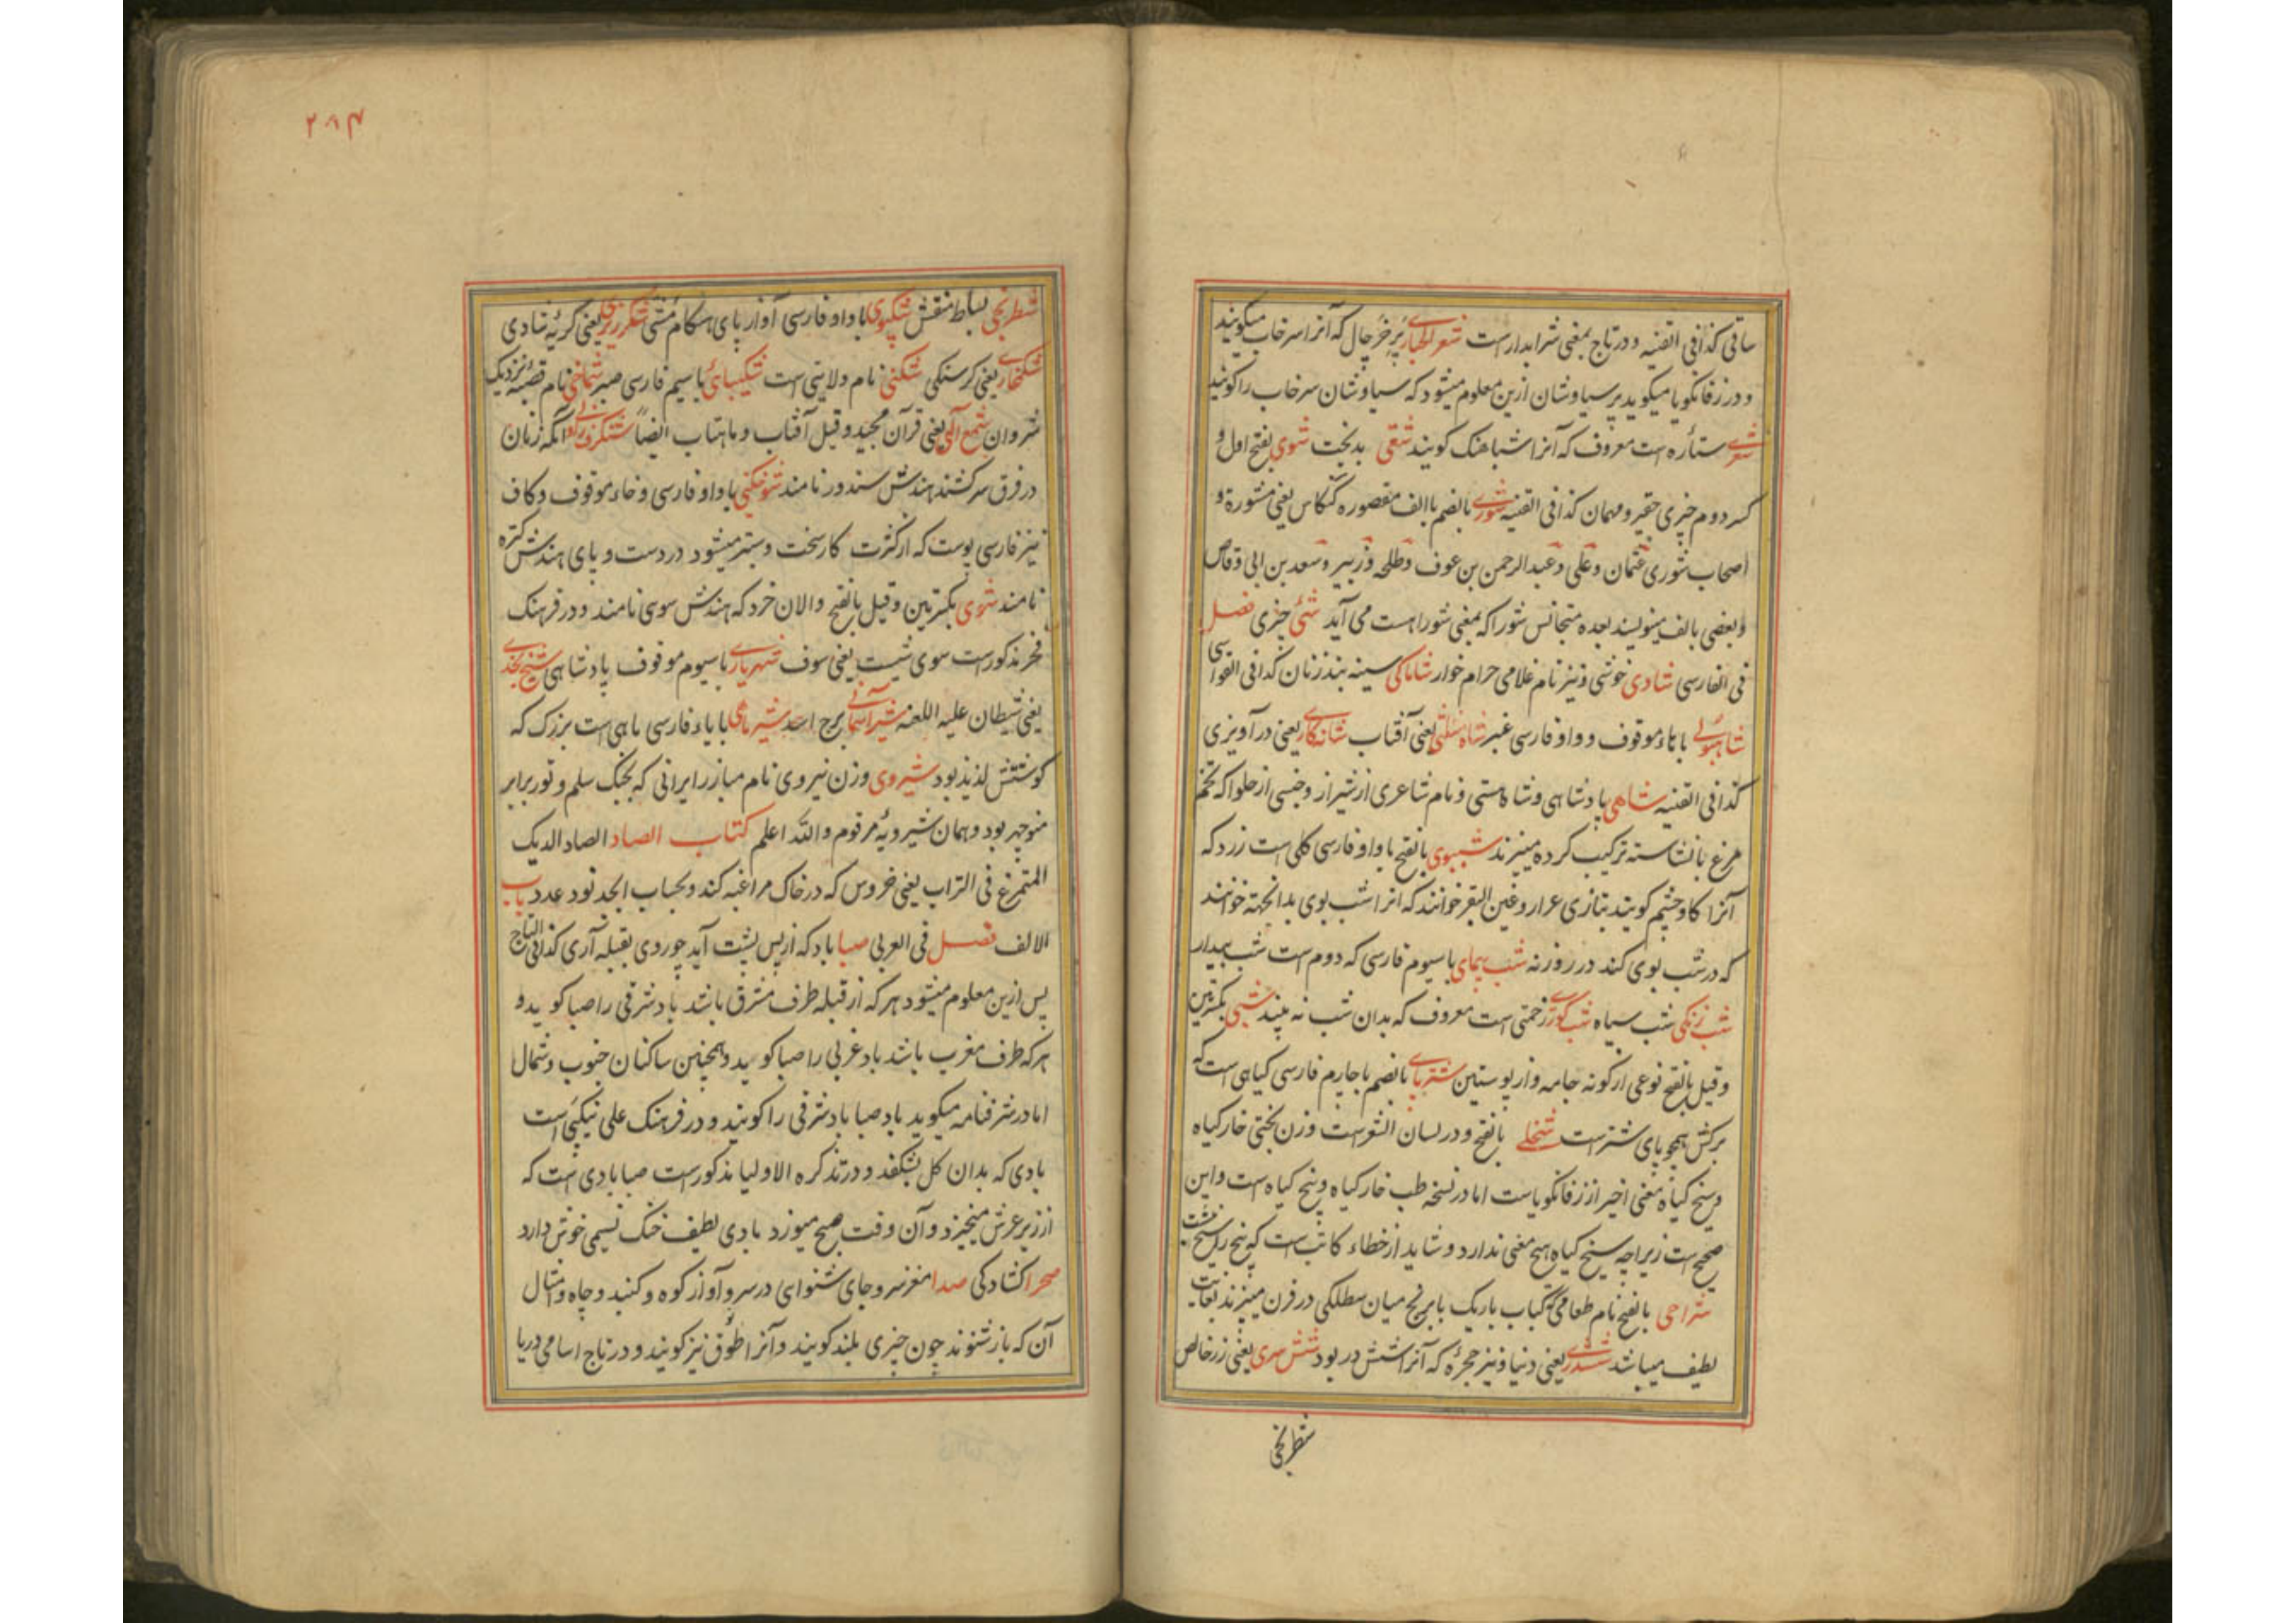 ساقی کذا فی القنیه و در تاج بمعنی شرابدارست شعر الجبار پر خرجال که آنرا سرخاب میگویند
و در زفانگویا میگوید پر سیاوشان ازین معلوم میشود که سیاوشان سرخاب را گویند
شعری ستاره است معروف که آنرا شباهنگ گویند شقی بدبخت شوی بفتح اول و
کسر دوم چیزی حقیر و مهمان کذا فی القنیه شوری بالضم باالف مقصوره کنکاس یعنی مشورة و
اصحاب شوری عثمان و علی و عبدالرحمن بن عوف و طلحه و زبیر و سعد بن ابی وقاص
و بعضی بالف مینویسند بعده متجانس شورا که بمعنی شوراست می آید شئ چیزی فصل
فی الفارسی شادی خوشی و نیز نام غلامی حرام خوار شاماکی سینه بند زنان کذا فی القواسی
شاهبوئی باهاء موقوف و واو فارسی عنبر شاه مثلثی یعنی آفتاب شانه کاری یعنی درآویزی
کذا فی القنیه شاهی پادشاهی و شاه هستی و نام شاعری از شیراز و جنسی از حلوا که تخم
مرغ با نشاسته ترکیب کرده میپزند شببوی بالفتح باواو فارسی گلی است زرد که
آنرا کاوچشم گویند بتازی عرار و عین البقر خوانند که انرا شب بوی بدانجهة خوانند
که در شب بوی کند در روز نه شب پیمای باسیوم فارسی که دوم است شب بیدار
شب زنکی شب سیاه شب کوری زحمتی است معروف که بدان شب نه بیند شبی بکسرتین
و قیل بالفتح نوعی از گونه جامه و از پوستین شترپای بالضم باچارم فارسی گیاهی است که
برکش همچو پای شترست شخلی بالفتح و در لسان الشعراست وزن بختی خار گیاه
و سیخ گیاه معنی اخیر از زفانگویاست اما در نسخه طب خار گیاه و بیخ گیاه است و این
صحیح است زیراچه سیخ گیاه هیچ معنی ندارد و شاید از خطاء کاتب است که بیخ را سیخ نبشت
شراحی بالفتح نام طعامی که کباب باریک با برنج میان سطلکی در فرن میپزند بغایت
لطیف میباشد ششدری یعنی دنیا و نیز حجرۀ که آنرا شش در بود شش سری یعنی زر خالص
شطرنجی
۲۸۴
شطرنجی بساط منقش شکپوی باواو فارسی آواز پای هنگام مشی شکرریزی یعنی گریۀ شادی
شکمخاری یعنی گرسنگی شکنی نام ولایتی است شکیبائی باسیم فارسی صبر شماخی نام قصبۀ نزدیک
شروان شمع آلهی یعنی قرآن مجید و قیل آفتاب و ماهتاب ایضاً شنکرفی آنکه زنان
در فرق سر کشند هندش سندور نامند شوخکنی باواو فارسی و خاء موقوف و کاف
نیز فارسی پوست که از کثرت کار سخت و ستبر میشود در دست و پای هندش گتره
نامند شوی بکسرتین و قیل بالفتح والان خرد که هندش سوی نامند و در فرهنگ
فخر مذکورست سوی شبت یعنی سوف شهریاری باسیوم موقوف پادشاهی شیخ نجدی
یعنی شیطان علیه اللعنه شیر آسمانی برج اسد شیر ماهی بایاء فارسی ماهی است بزرگ که
گوشتش لذیذ بود شیروی وزن نیروی نام مبارز ایرانی که بجنگ سلم و تور برابر
منوچهر بود و همان شیرویۀ مرقوم والله اعلم کتاب الصاد الصاد الدیک
المتمرغ فی التراب یعنی خروس که در خاک مراغه کند و بحساب ابجد نود عدد باب
الالف فصل فی العربی صبا باد که از پس پشت آید چو روی بقبله آری کذا فی التاج
پس ازین معلوم میشود هر که از قبله طرف مشرق باشد باد شرقی را صبا گوید و
هر که طرف مغرب باشد باد غربی را صبا گوید و همچنین ساکنان جنوب و شمال
اما در شرفنامه میگوید باد صبا باد شرقی را گویند و در فرهنگ علی نیکپی است
بادی که بدان گل بشکفد و در تذکره الاولیا مذکورست صبا بادی است که
از زیر عرش میخیزد و آن وقت صبح میوزد بادی لطیف خنک نسیمی خوش دارد
صحرا کشادگی صدا مغز سر و جای شنوای در سر و آواز کوه و گنبد و چاه و مثال
آن که باز شنوند چون چیزی بلند گویند و آنرا طوق نیز گویند و در تاج اسامی دریا